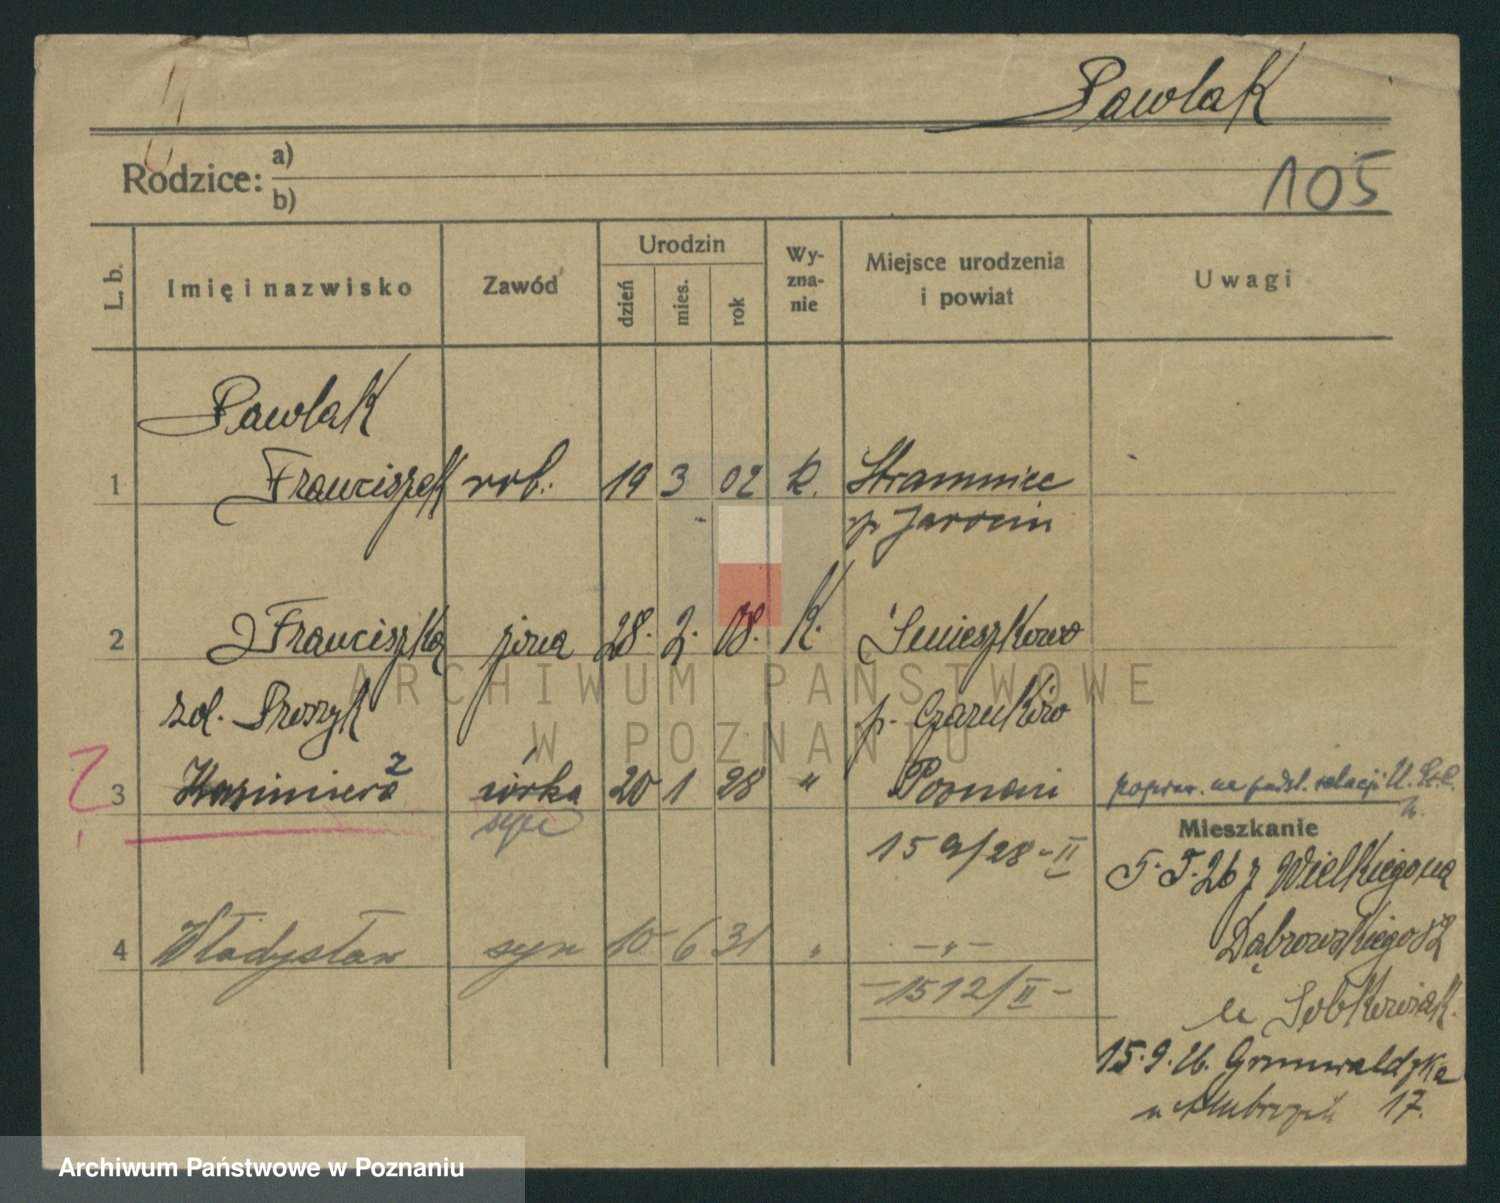 Pawlak
105
Rodzice: a)
b)
L. b. Imię i nazwisko Zawód Urodzin dzień mies. rok Wy-zna-nie Miejsce urodzenia i powiat Uwagi
Pawlak
1 Franciszek rob. 19 3 02 k. Stramnice
p. Jarocin
2 Franciszka żona 28. 2. 08. K. Śmieszkowo
p. Czarnków
3 Kazimierz córka 20 1 28 " Poznań popraw. na podst. relacji
syn 159/28 - II
Mieszkanie
5. 5. 26 z Wielkiego na
Dąbrowskiego 82
u Sobkowiak.
4 Władysław syn 10 6 31 " - " -
- 1512/II -
15. 9. 26. Grunwaldzka
u 17.
ARCHIWUM PAŃSTWOWE
W POZNANIU
Archiwum Państwowe w Poznaniu